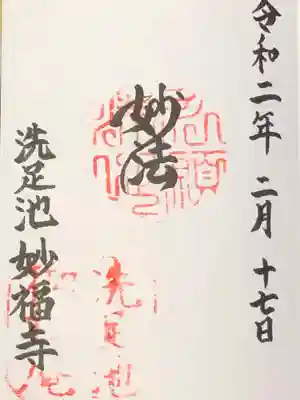 令和二年 二月 十七日
妙法
洗足池
洗足池妙福寺